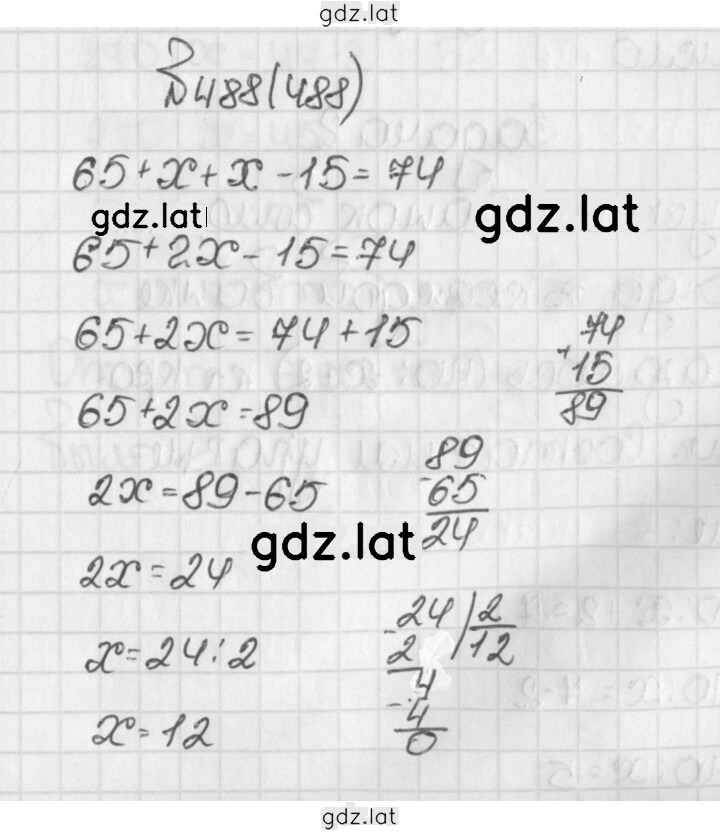 gdz.lat
№488(488)
65+x+x-15=74
gdz.lat
gdz.lat
65+2x-15=74
65+2x=74+15
74
+15
89
65+2x=89
2x=89-65
89
-65
24
gdz.lat
2x=24
x=24:2
-24 | 2
2 | 12
4
-4
0
x=12
gdz.lat